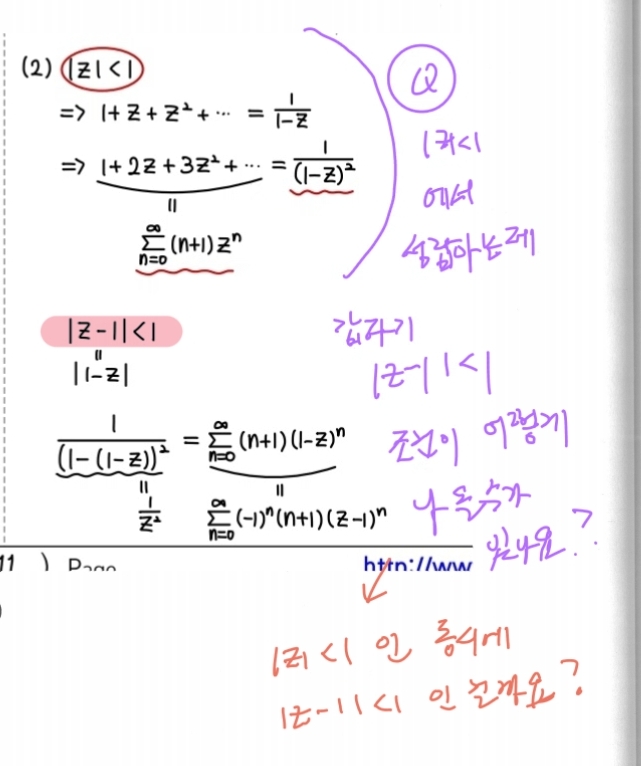 (2) |z|<1
=> 1+z+z²+⋯ = 1/(1-z)
=> 1+2z+3z²+⋯ = 1/(1-z)²
=
∑_{n=0}^{∞} (n+1)zⁿ
|z-1|<1
=
|1-z|
1/(1-(1-z))² = ∑_{n=0}^{∞} (n+1)(1-z)ⁿ
= =
1/z² ∑_{n=0}^{∞} (-1)ⁿ(n+1)(z-1)ⁿ
Q
|z|<1
에서
성립하는데
갑자기
|z-1|<1
조건이 어떻게
나올수가
있나요?
11 ) Page
http://www
|z|<1 인 동시에
|z-1|<1 인건가요?